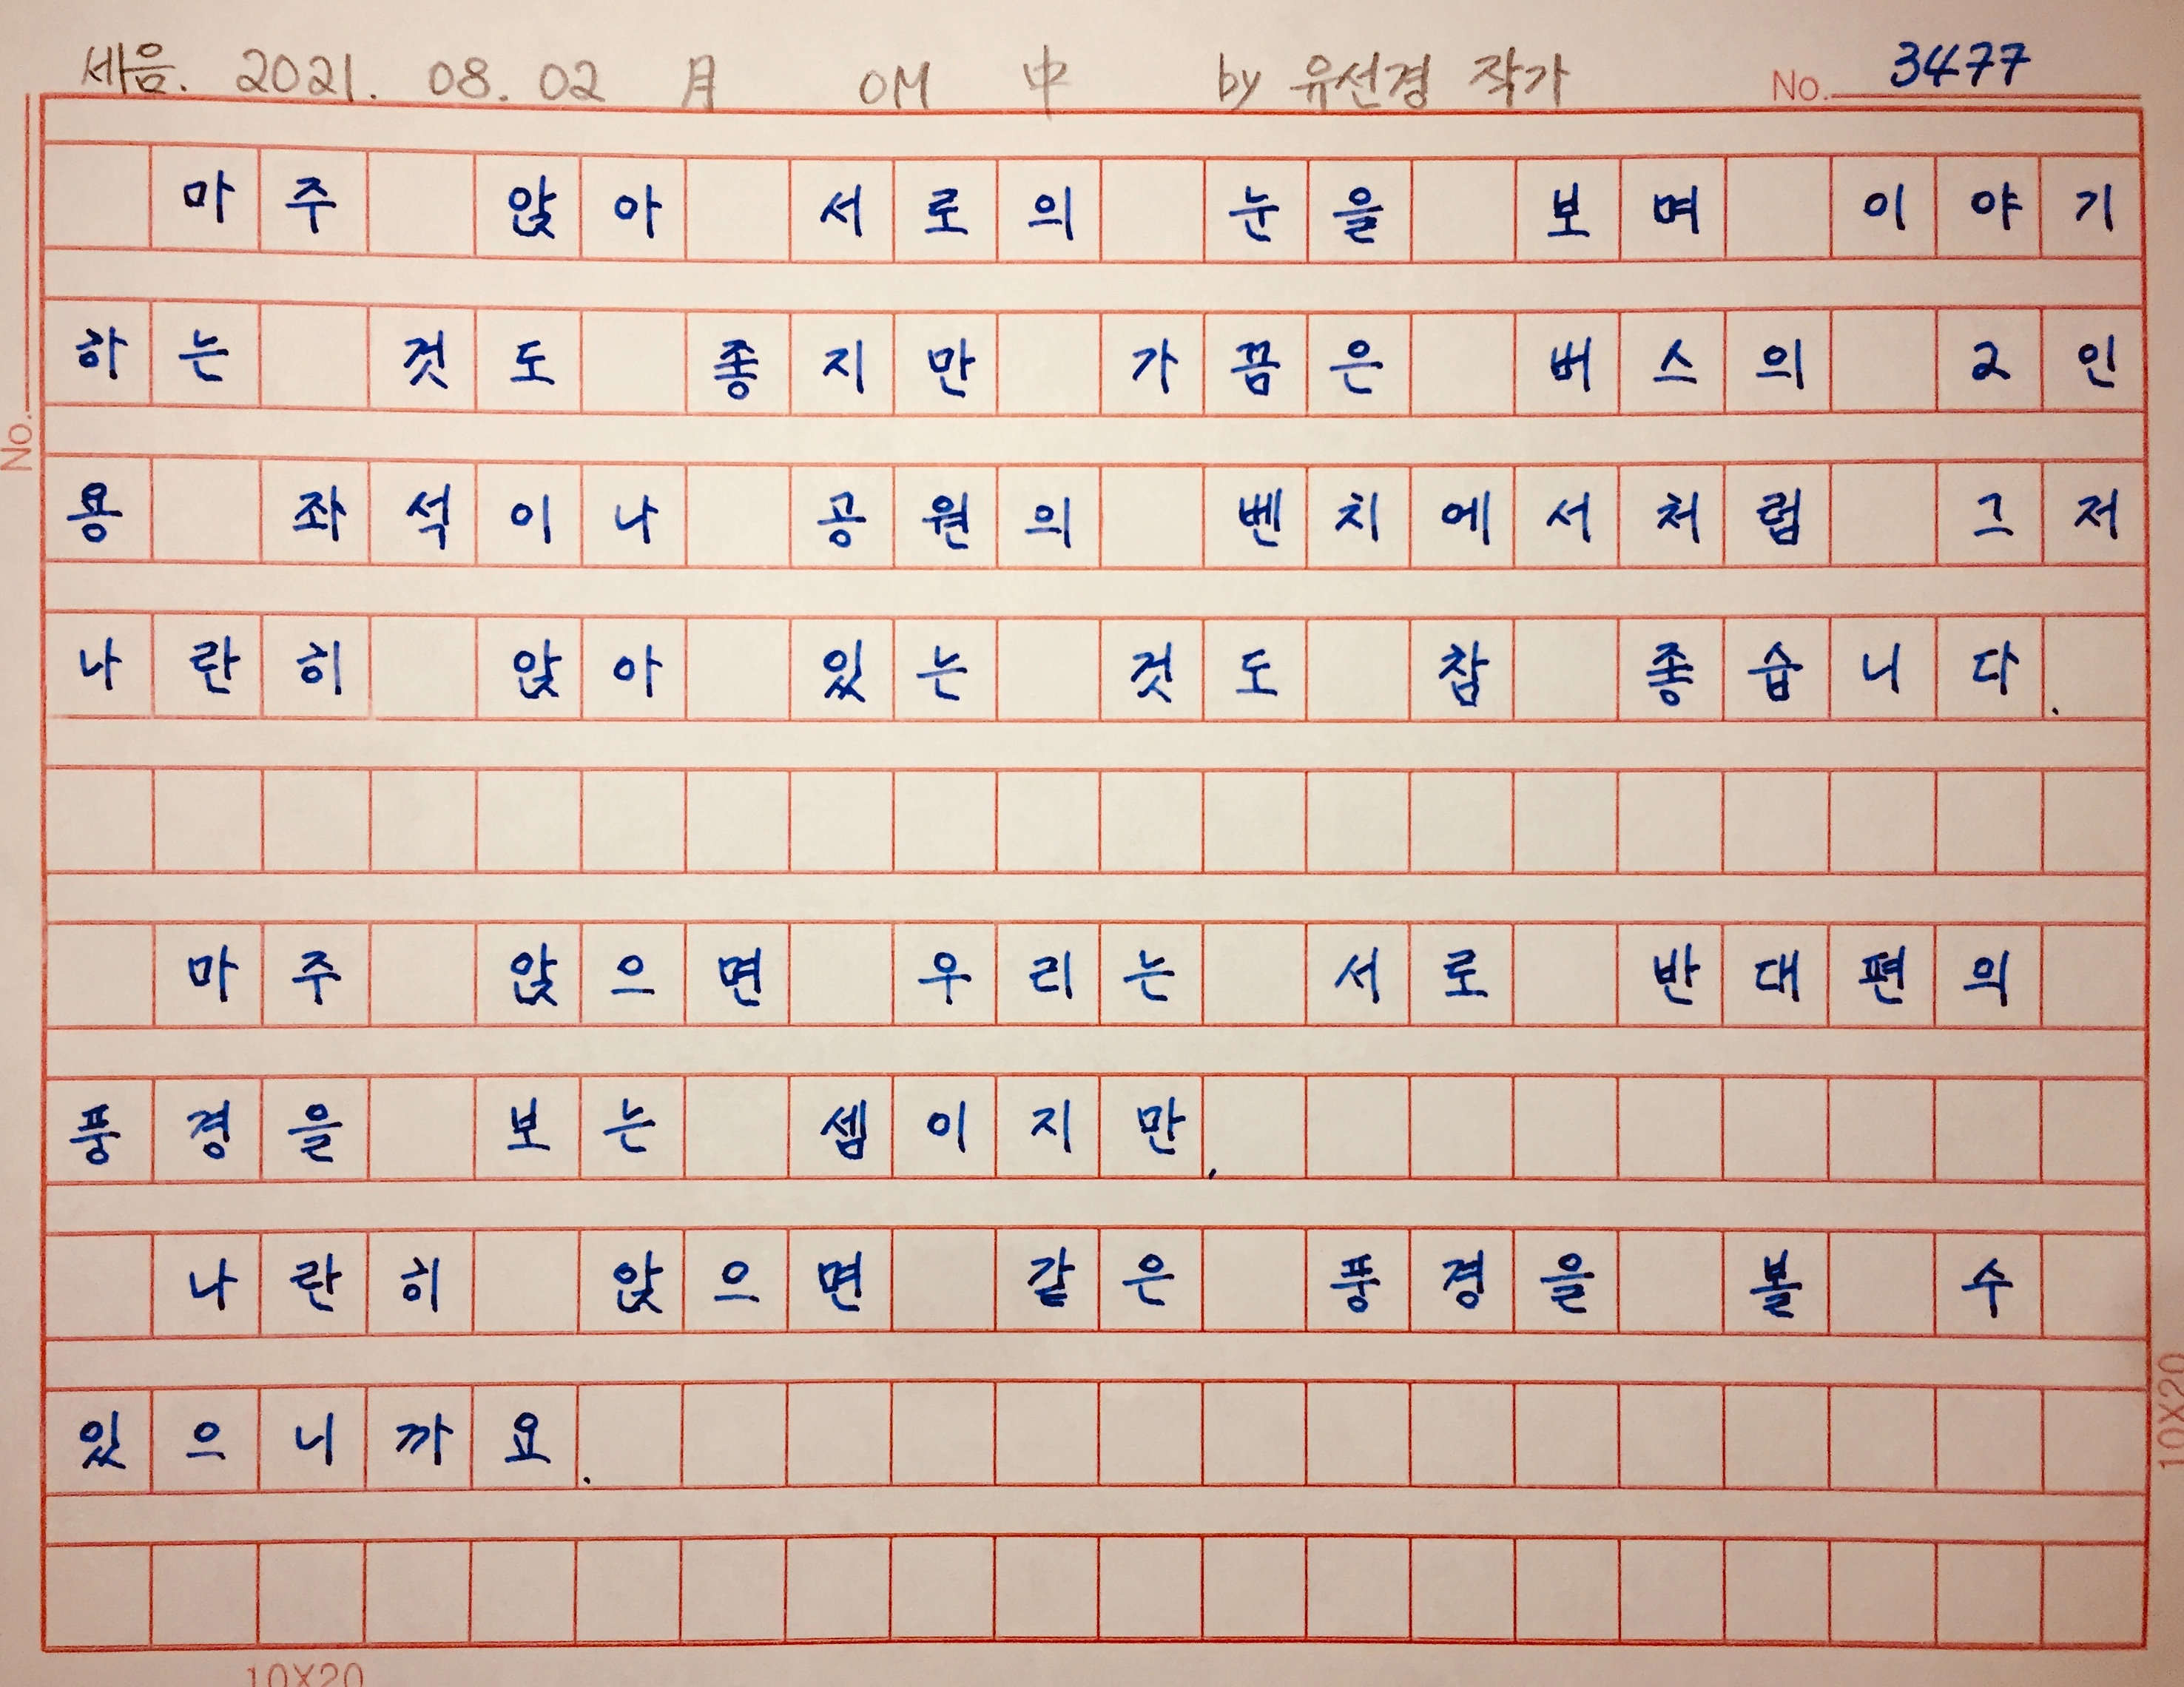 세음. 2021. 08. 02 月 OM 中 by 유선경 작가 No. 3477
마주 앉아 서로의 눈을 보며 이야기
하는 것도 좋지만 가끔은 버스의 2인
용 좌석이나 공원의 벤치에서처럼 그저
나란히 앉아 있는 것도 참 좋습니다.
마주 앉으면 우리는 서로 반대편의
풍경을 보는 셈이지만,
나란히 앉으면 같은 풍경을 볼 수
있으니까요.
No.
10X20
10X20